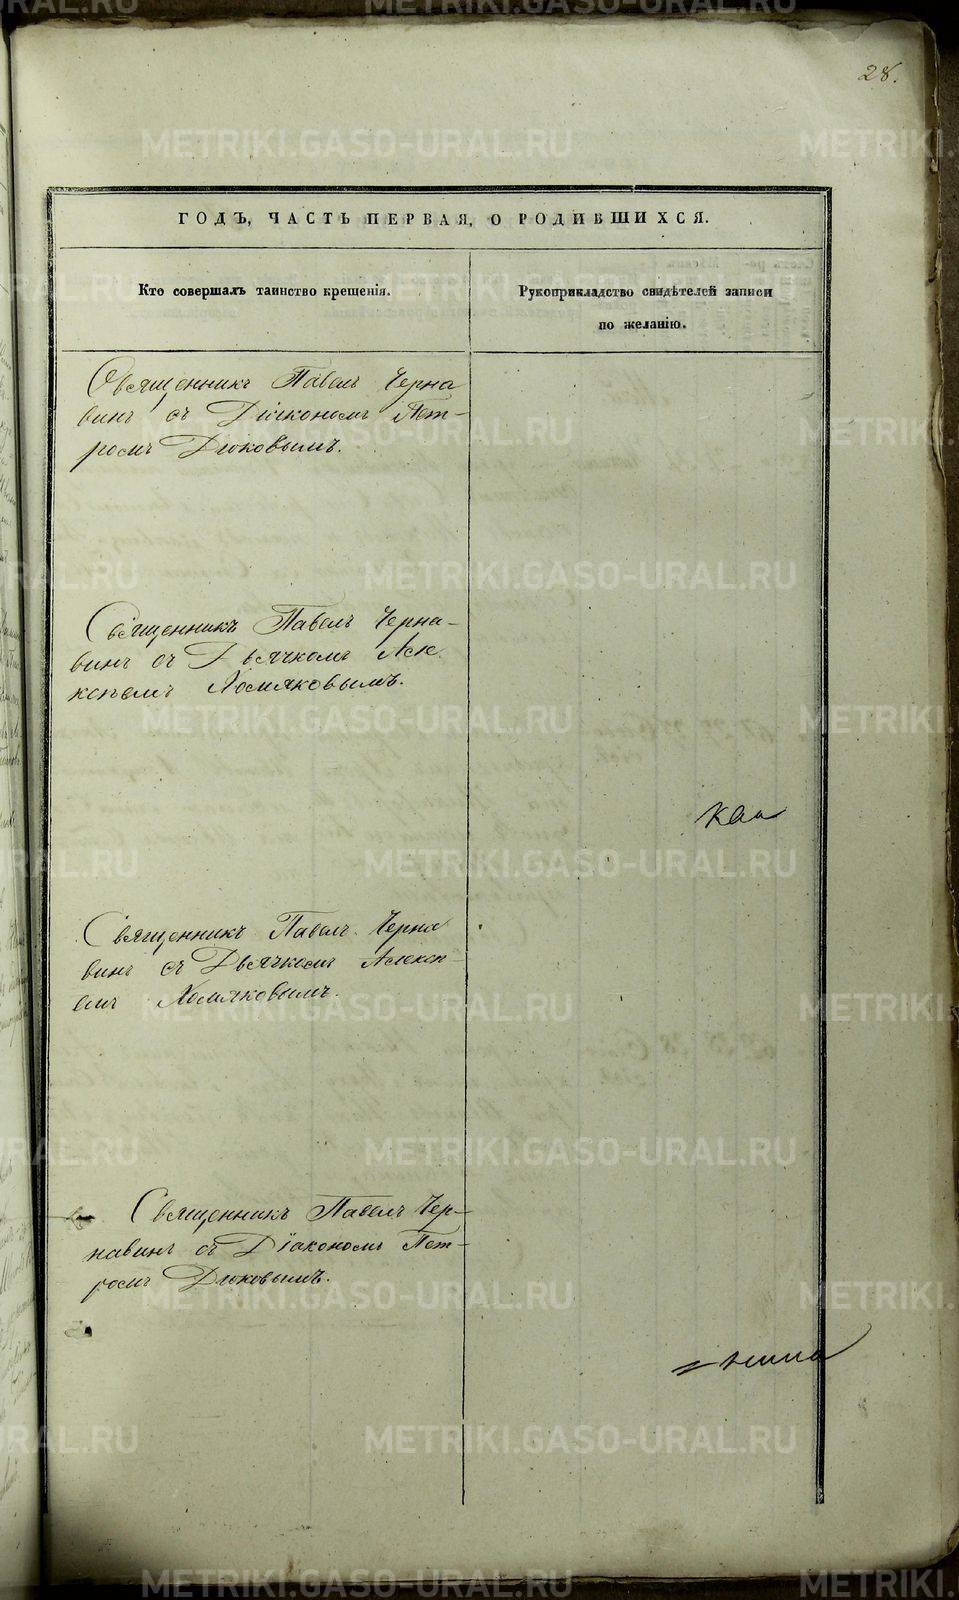 28.
ГОДЪ, ЧАСТЬ ПЕРВАЯ, О РОДИВШИХСЯ.
Кто совершалъ таинство крещенія.
Рукоприкладство свидѣтелей записи
по желанію.
Священникъ Павелъ Черна
винъ съ Діакономъ Пет-
ромъ Дюковымъ.
Священникъ Павелъ Черна-
винъ съ Дьячкомъ Але
ксѣемъ Хомяковымъ.
Священникъ Павелъ Черна
винъ съ Дьячкомъ Алексѣ-
емъ Хомяковымъ.
Священникъ Павелъ Чер-
навинъ съ Діакономъ Пет-
ромъ Дюковымъ.
METRIKI.GASO-URAL.RU